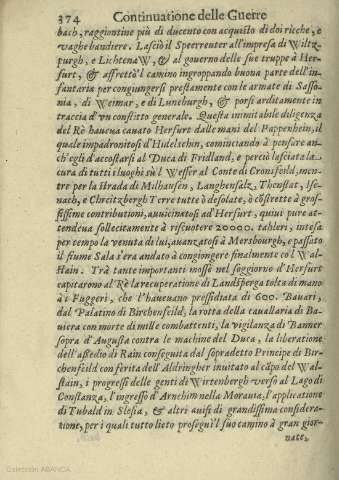 374 Continuatione delle Guerre
bach, raggiontine più di ducento con acquisto di doi ricche, e
vaghe bandiere. Lasciò il Speerreuter all'impresa di Wiltz-
purgh, e LichtenaW, & al governo delle sue truppe à Her-
furt, & affrettò'l camino ingroppando buona parte dell'in-
fantaria per congiungersi prestamente con le armate di Sasso-
nia, di Weimar, e di Luneburgh, & porsi arditamente in
traccia d'un conflitto generale. Questa inimitabile diligenza
del Rè haueua cauato Herfurt dalle mani del Pappenhein, il
quale impadronitosi d'Hidelschin, cominciando à pensare an-
ch'egli d'accostarsi al Duca di Fridland, e perciò lasciata la
cura di tutti i luoghi sù l Wesser al Conte di Cronsfeild, men-
tre per la strada di Milhausen, Langhensalz, Thenstat, Ise-
nach, e Chreitzbergh Terre tutte ò desolate, ò costrette à gros-
sissime contributioni, auuicinatosi ad Hersurt, quiui pure at-
tendeua sollecitamente à riscuotere 20000. talleri, intesa
per tempo la venuta di lui, auanzatosi à Mersbourgh, e passato
il fiume Sala s'era andato à congiongere finalmente col Wal-
stain. Trà tante importanti mosse nel soggiorno d'Herfurt
capitarono al Rè la recuperatione di Landsperga tolta di mano
à i Fuggeri, che l'haueuano pressidiata di 600. Bauari,
dal Palatino di Birchenfeild, la rotta della cauallaria di Ba-
uiera con morte di mille combattenti, la vigilanza di Banner
sopra d'Augusta contra le machine del Duca, la liberatione
dell'assedio di Rain conseguita dal sopradetto Principe di Bir-
chenfeild con ferita dell'Aldringher inuitato al cãpo del Wal-
stain, i progressi delle genti de Wirtenbergh verso al Lago di
Constanza, l'ingresso d'Arnehim nella Morauia, l'applicatione
di Tubald in Slesia, & altri auisi di grandissima considera-
tione, per i quali tutto lieto proseguì'l suo camino à gran gior-
nate,
Colección ABANCA